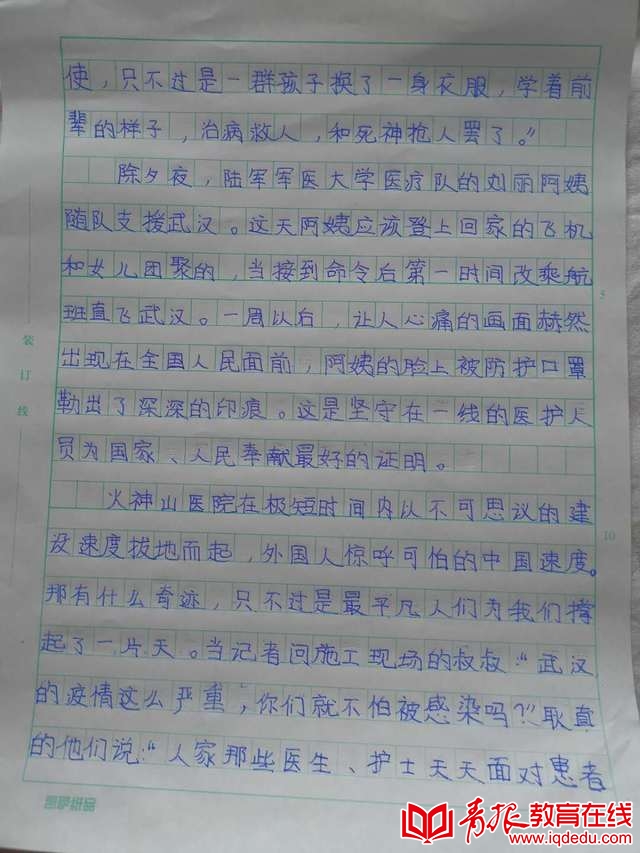 使，只不过是一群孩子换了一身衣服，学着前
辈的样子，治病救人，和死神抢人罢了。”
除夕夜，陆军军医大学医疗队的刘丽阿姨
随队支援武汉。这天阿姨应该登上回家的飞机
和女儿团聚的，当接到命令后第一时间改乘航
班直飞武汉。一周以后，让人心痛的画面赫然
出现在全国人民面前，阿姨的脸上被防护口罩
勒出了深深的印痕。这是坚守在一线的医护人
员为国家、人民奉献最好的证明。
火神山医院在极短时间内以不可思议的建
设速度拔地而起，外国人惊呼可怕的中国速度。
那有什么奇迹，只不过是最平凡人们为我们撑
起了一片天。当记者问施工现场的叔叔“武汉
的疫情这么严重，你们就不怕被感染吗？”耿真
的他们说：“人家那些医生、护士天天面对患者
装
订
线
5
10
青报教育在线
www.iqdedu.com